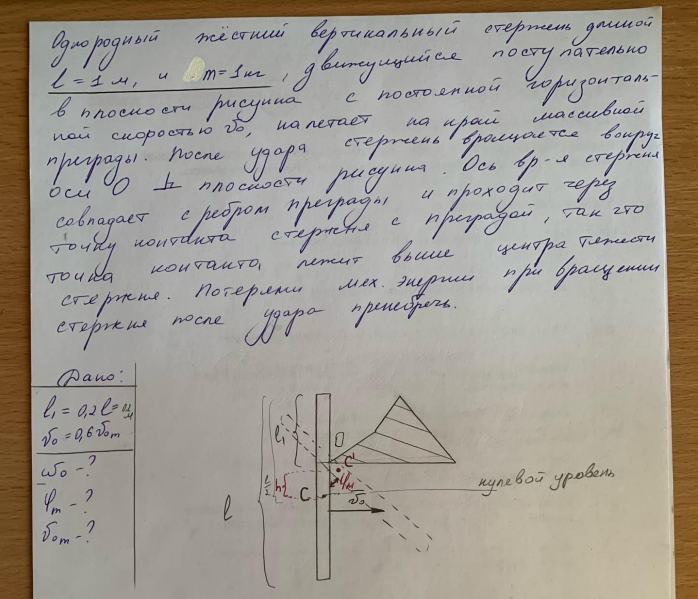 Однородный жёсткий вертикальный стержень длиной
l = 1 м, и m = 1 кг, движущийся поступательно
в плоскости рисунка с постоянной горизонталь-
ной скоростью v₀, налетает на край массивной
преграды. После удара стержень вращается вокруг
оси О ⊥ плоскости рисунка. Ось вр-я стержня
совпадает с ребром преграды и проходит через
точку контакта стержня с преградой, так что
точка контакта лежит выше центра тяжести
стержня. Потерями мех. энергии при вращении
стержня после удара пренебречь.
Дано:
l₁ = 0,2 l = 0,2 м
v₀ = 0,6 v₀ₘ
ω₀ - ?
φₘ - ?
v₀ₘ - ?
l
l/2
h
l₁
O
C
C'
φₘ
v₀
нулевой уровень